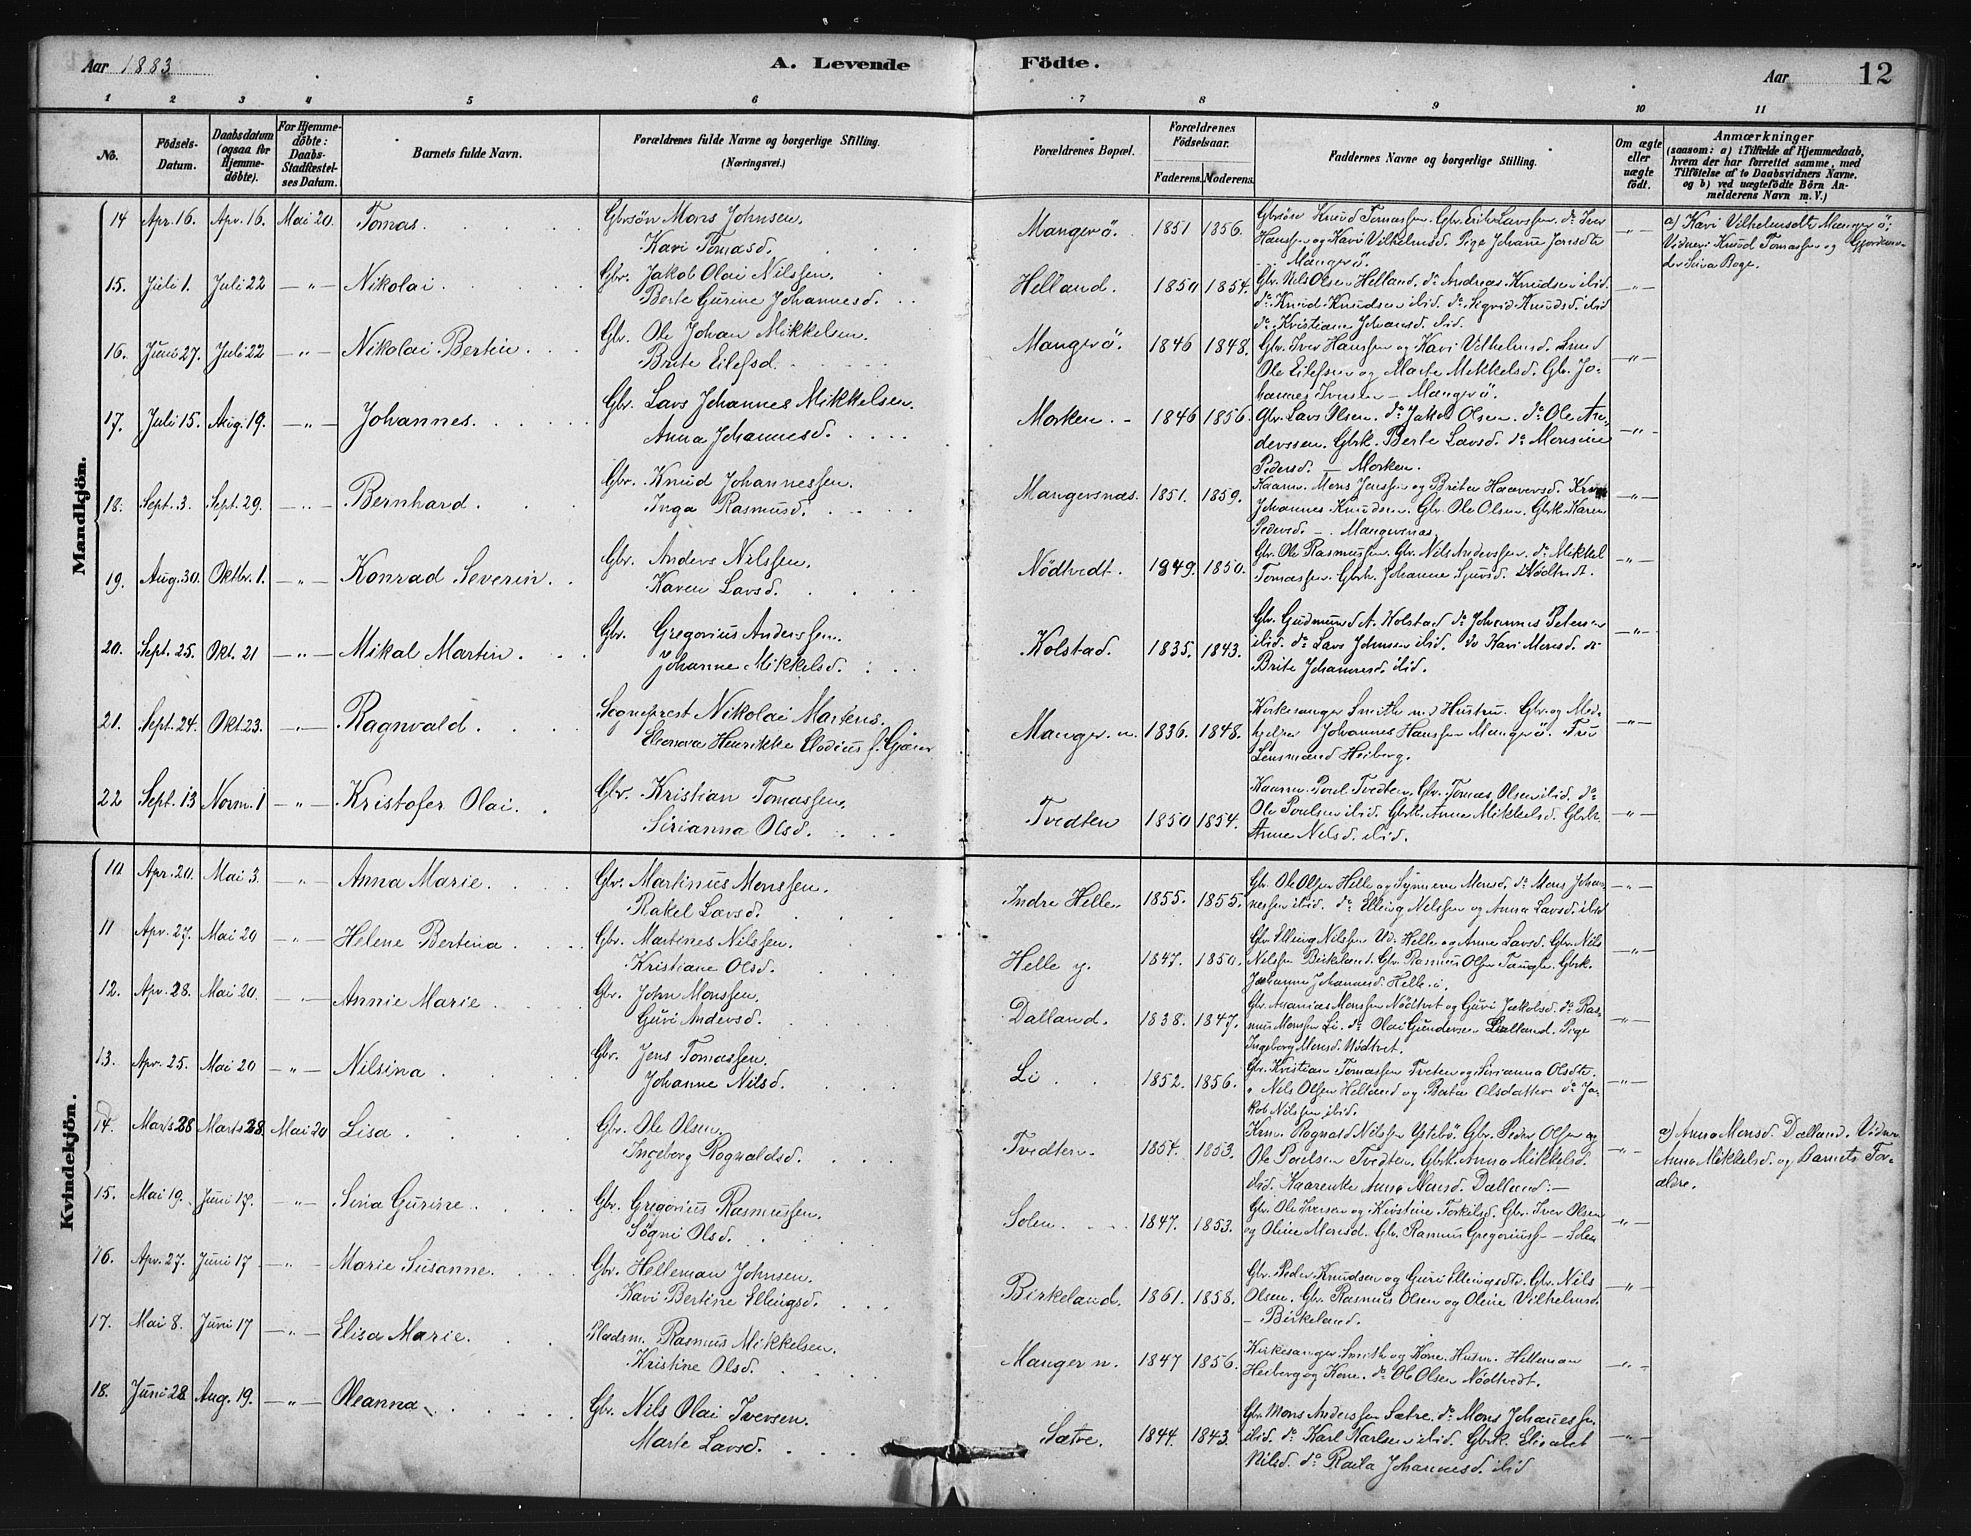 Aar 1883
A. Levende
Födte.
Aar
12
1 2 3 4 5 6 7 8 9 10 11
No.
Födsels-Datum.
Daabsdatum (ogsaa for Hjemme-döbte).
For Hjemme-döbte: Daabs-Stadfæstel-ses Datum.
Barnets fulde Navn.
Forældrenes fulde Navne og borgerlige Stilling. (Næringsvei.)
Forældrenes Bopæl.
Forældrenes Födselsaar.
Faderens. Moderens.
Faddernes Navne og borgerlige Stilling.
Om ægte eller uægte födt.
Anmærkninger
(saasom: a) i Tilfælde af Hjemmedaab,
hvem der har forrettet samme, med
Tilföielse af to Daabsvidners Navne.
og b) ved uægtefödte Börn An-
melderens Navn m. V.)
Mandkjön.
14 Apr. 16. Apr. 16. Mai 20. Tomas. Gbrsön Mons Johnsen. Mangerö. 1851 1856. Gbrsön Knud Tomassen. Gbr. Erik Larssen. do Iver
Kari Tomasd. Hanssen og Kari Vilhelmsd. Pige Johane Jonsdtr
Mangerö.
a) Kari Vilhelmsdt Mangerö;
Vidner: Knud Tomassen og Gjordemo-
der Sina Boge.
15. Juli 1. Juli 22 -"- Nikolai. Gbr. Jakob Olai Nilssen. Helland. 1850 1854. Gbr. Nils Olsen Helland. do Andreas Knudsen ibid. -"-
Berte Gurine Johannesd. do Knud Knudsen ibid. do Sigrid Knudsd. ibid
do Kristiane Johansd. ibid.
16. Juni 27. Juli 22 -"- Nikolai Bertin. Gbr. Ole Johan Mikkelsen. Mangerö. 1846 1848. Gbr. Iver Hanssen og Kari Vilhelmsd. -"-
Brite Eilefsd. Ole Eilefsen og Marte Mikkelsd. Gbr. Jo-
hannes Iversen - Mangerö.
17. Juli 15. Aug. 19. -"- Johannes. Gbr. Lars Johannes Mikkelsen. Morken. 1846 1856. Gbr. Lars Olsen. do Jakob Olsen. do Ole An- -"-
Anna Johannesd. derssen. Gbrk. Berte Larsd. do Monsine
Pedersd. - Morken.
18. Sept. 3. Sept. 29. -"- Bernhard. Gbr. Knud Johannessen. Mangersnæs. 1851. 1859. Kaarm. Mons Jenssen og Brite Haaversd. -"-
Inga Rasmusd. Johannes Knudsen. Gbr. Ole Olsen. Gbrk. Karen
Pedersd. - Mangersnæs.
19. Aug. 30. Oktbr. 1. -"- Konrad Severin. Gbr. Anders Nilssen. Nödtvedt. 1849. 1850. Gbr. Ole Rasmussen. Gbr. Nils Anderssen. do Mikkel -"-
Karen Larsd. Tomassen. Gbrk. Johanne Sjursd. Nödtvedt.
20. Sept. 25. Okt. 21 -"- Mikal Martin. Gbr. Gregorius Anderssen. Kolstad. 1835. 1843. Gbr. Gudmund A. Kolstad do Johannes Petersen -"-
Johanne Mikkelsd. ibid. do Lars Johnsen ibid. do Kari Monsd. do
Brite Johannesd. ibid.
21. Sept. 24. Okt. 23. -"- Ragnvald. Sogneprest Nikolai Martens. Manger. n. 1836. 1848. Kirkesanger Smith med Hustru. Gbr. og Med- -"-
Eleonora Henrikke Clodius f. hjelper Johannes Hanssen Mangerö. Fru
Lensmand Heiberg.
22 Sept. 13 Novm. 1 -"- Kristofer Olai. Gbr. Kristian Tomassen. Tvedten 1850 1854. Kaarm. Poul Tvedten. Gbr. Tomas Olsen ibid. do -"-
Sirianna Olsd. Ole Poulsen ibid. Gbrk. Anne Mikkelsd. Gbrk.
Anne Nilsd. ibid.
Kvindekjön.
10 Apr. 20. Mai 3. -"- Anna Marie. Gbr. Martinus Monssen. Indre Helle 1855. 1855. Gbr. Ole Olsen Helle og Synneve Monsd. do Mons Johan- -"-
Rakel Larsd. nessen ibid. do Elling Nilssen og Anna Larsd. ibid
11 Apr. 27. Mai 20 -"- Helene Bertina. Gbr. Martines Nilssen. Helle y. 1847. 1850. Gbr. Elling Nilssen Ud. Helle og Anne Larsd. Gbr. Nils -"-
Kristiane Olsd. Nilssen Birkeland. Gbr. Rasmus Olsen Gbrk.
Johanne Johannesd. Helle i.
12. Apr. 28. Mai 20. -"- Annie Marie. Gbr. John Monssen. Dalland. 1838. 1847. Gbr. Ananias Monssen Nödtvet og Guri Jakobsd. do Ras- -"-
Guri Andersd. mus Monssen Li. do Olai Gundersen Dalland. Pige
Ingeborg Monsd. Nödtvet.
13. Apr. 25. Mai 20 -"- Nilsina. Gbr. Jens Tomassen. Li. 1852. 1856. Gbr. Kristian Tomassen Tveten og Sirianna Olsdtr. -"-
Johanne Nilsd. " Nils Olsen Helland og Berta Olsdatter do Ja-
kob Nilssen ibid.
14. Marts 28 Marts 28. Mai 20 Lisa. Gbr. Ole Olsen. Tvedten. 1854. 1853. Krm. Rognald Nilssen Ystebö. Gbr. Peder Olsen og -"-
Ingeborg Rognaldsd. Ole Poulsen Tvedten. Gbrk. Anna Mikkelsd.
ibid. Kaarenke Anna Monsd. Dælland. -
a) Anna Monsd. Dælland. Vidner
Anna Mikkelsd. og Barnets For-
ældre.
15. Mai 19. Juni 17. -"- Sina Gurine. Gbr. Gregorius Rasmussen. Solem. 1847. 1853. Gbr. Ole Iversen og Kirstine Torkilsd. Gbr. Iver Olsen -"-
Sögni Olsd. og Oline Monsd. Gbr. Rasmus Gregoriuss - Solem
16. Apr. 27. Juni 17 -"- Marie Susanne. Gbr. Helleman Johnsen. Birkeland. 1861. 1858. Gbr. Peder Knudsen og Guri Ellingsdtr. Gbr. Nils -"-
Kari Bertine Ellingsd. Olsen. Gbr. Rasmus Olsen og Oline Vilhelmsd.
- Birkeland.
17. Mai 8. Juni 17 -"- Elisa Marie. Pladsm. Rasmus Mikkelsen. Manger n. 1847 1856. Kirkesanger Smith og Kone. Husm. Helleman -"-
Kristine Olsd. Heiberg og Kone. do Ole Olsen Nödtvedt.
18. Juni 28 Aug. 19. -"- Oleanna. Gbr. Nils Olai Iversen. Sætre. 1844. 1843. Gbr. Mons Anderssen Sætre. do Mons Johannessen -"-
Marte Larsd. ibid. do Karl Karlsen ibid. Gbrk. Elisabet
Nilsd. do Raila Johannesd. ibid